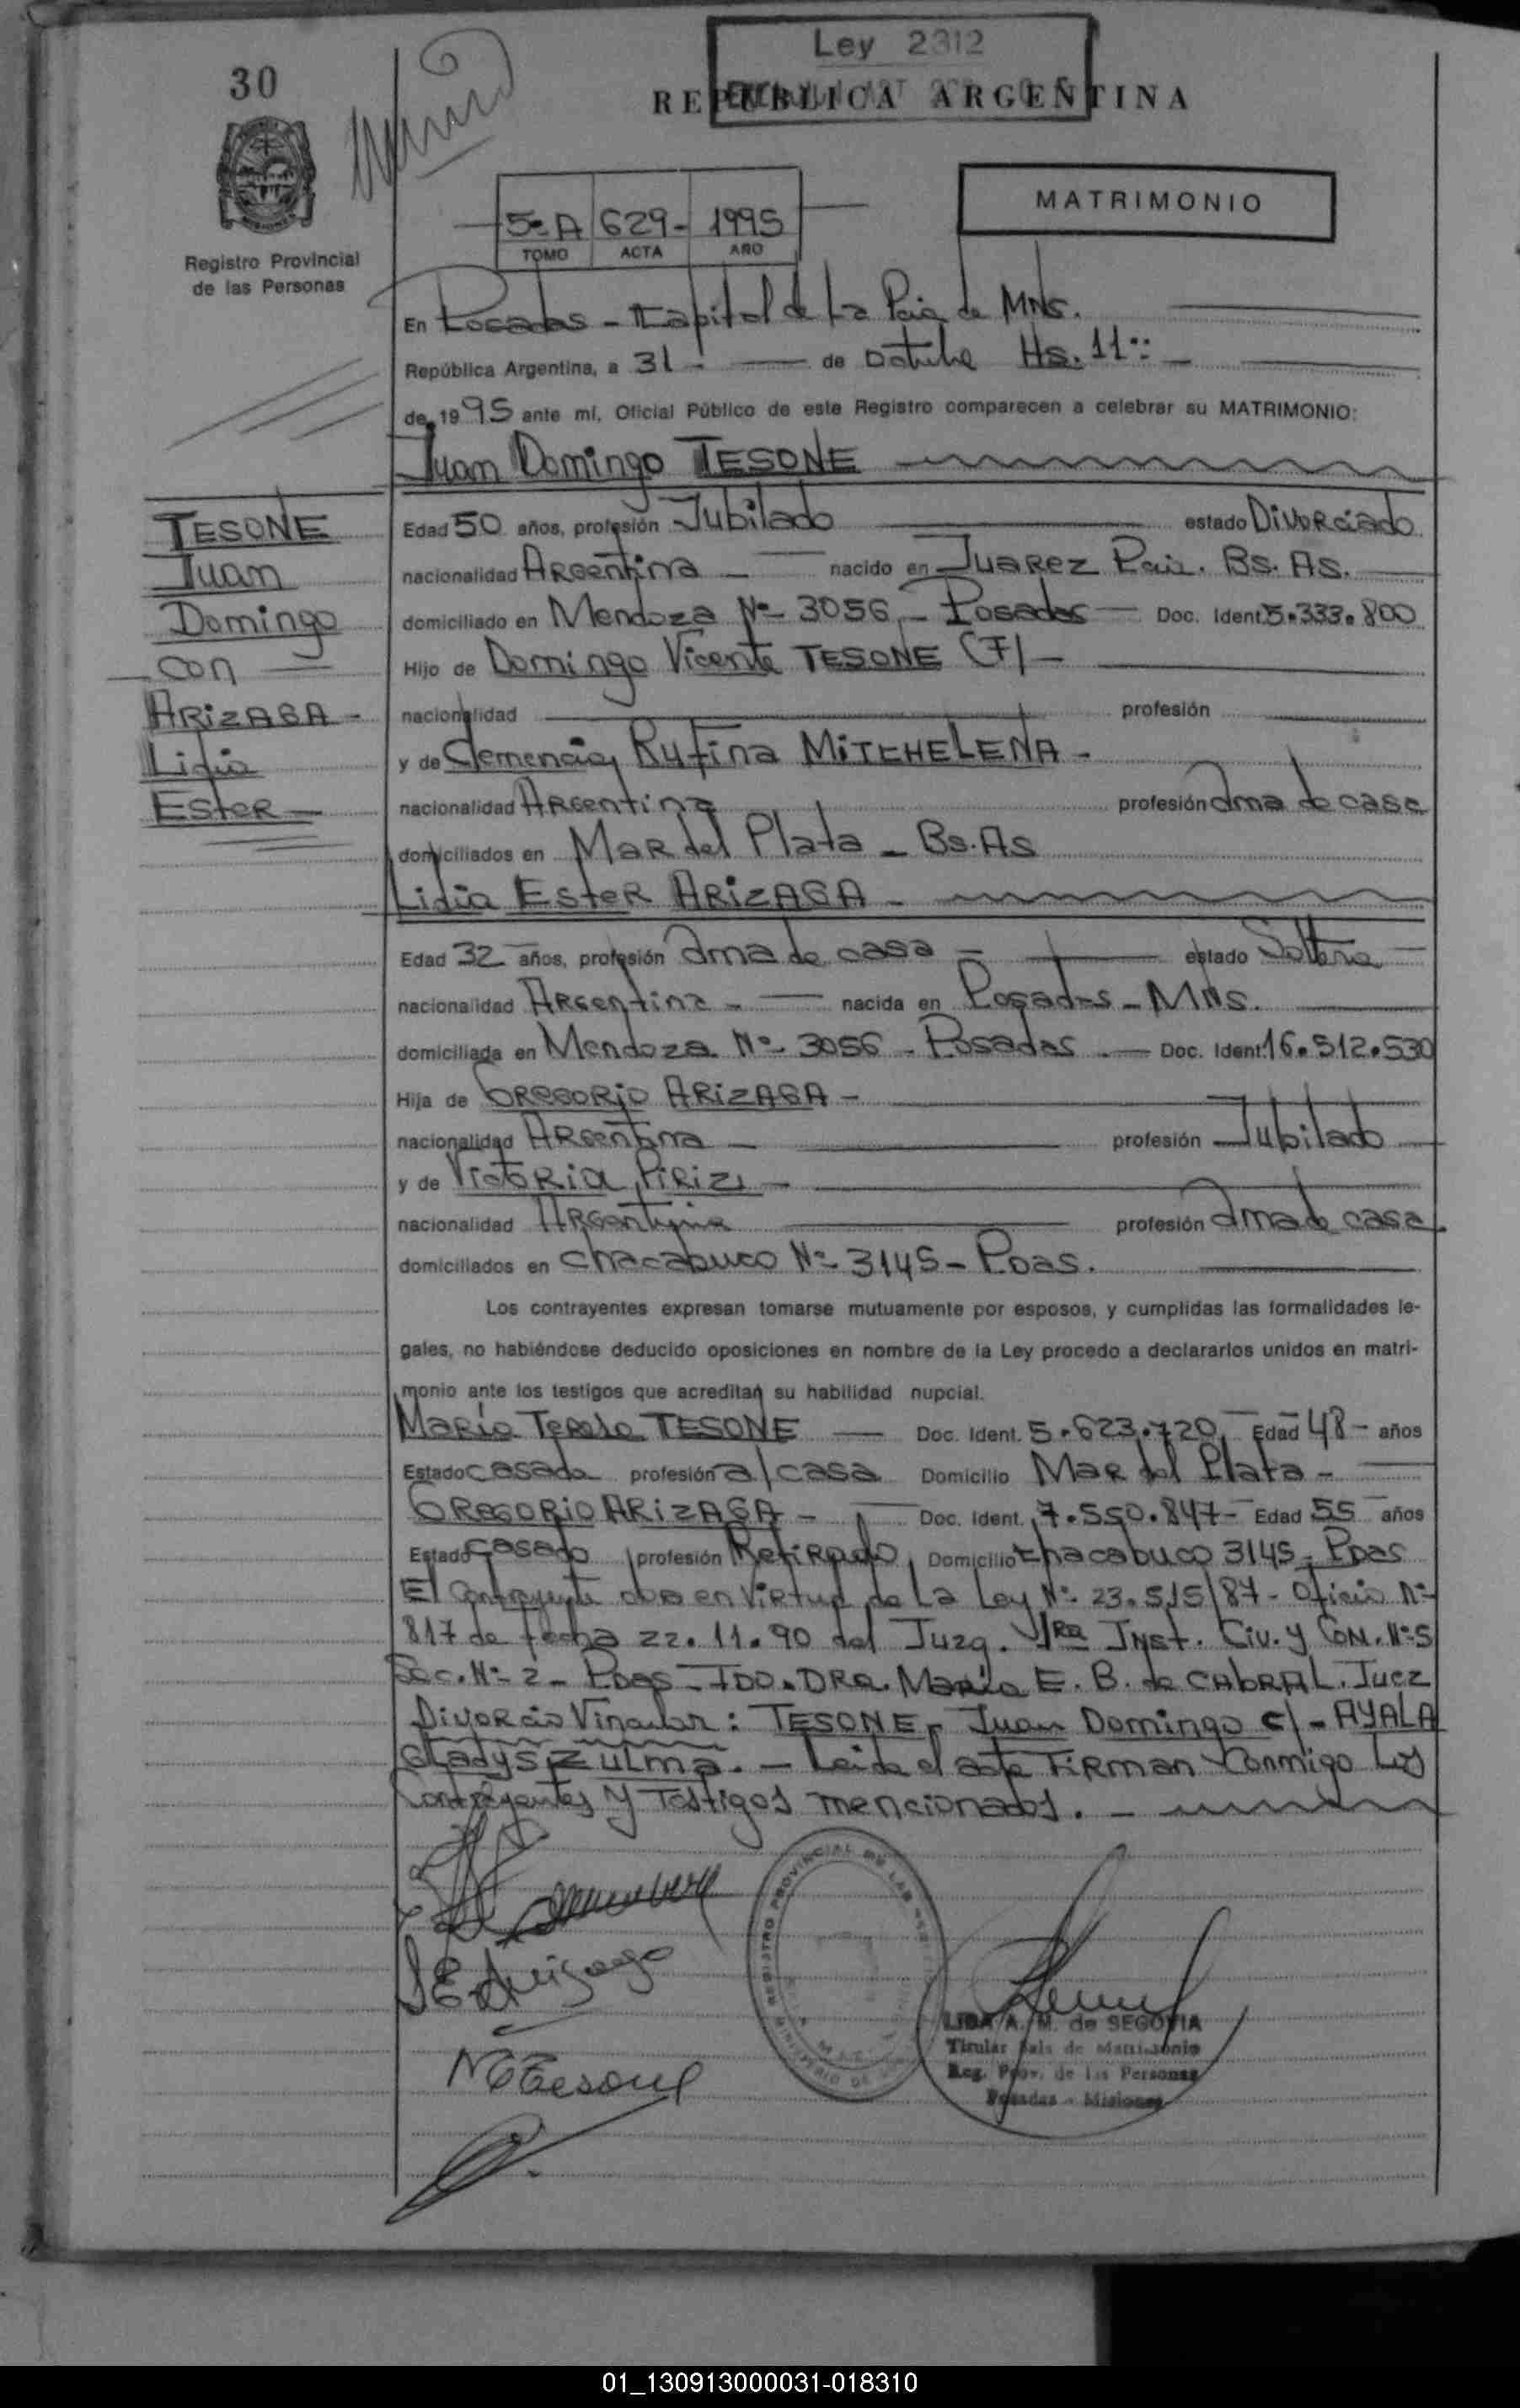 30
Ley 2312
REPUBLICA ARGENTINA
MATRIMONIO
5º A 629- 1995
TOMO ACTA AÑO
Registro Provincial
de las Personas
En Posadas - Capital de La Pcia de MNS.
República Argentina, a 31 - de Octubre Hs. 11::
de 1995 ante mí, Oficial Público de este Registro comparecen a celebrar su MATRIMONIO:
Juan Domingo TESONE
TESONE
Juan
Domingo
con
ARIZAGA -
Lidia
Ester
Edad 50 años, profesión Jubilado estado Divorciado
nacionalidad Argentina - nacido en Juarez Pcia. Bs. As.
domiciliado en Mendoza Nº 3056 - Posadas - Doc. Ident. 5.333.800
Hijo de Domingo Vicente TESONE (F) -
nacionalidad profesión
y de Clemencia Rufina MITCHELENA -
nacionalidad Argentina profesión Ama de casa
domiciliados en Mar del Plata - Bs. As
Lidia Ester ARIZAGA -
Edad 32 años, profesión Ama de casa - estado Soltera
nacionalidad Argentina - nacida en Posadas - MNS.
domiciliada en Mendoza Nº 3056 - Posadas - Doc. Ident. 16.512.530
Hija de GREGORIO ARIZAGA -
nacionalidad Argentina profesión Jubilado
y de Victoria PIRIZ -
nacionalidad Argentina profesión Ama de casa
domiciliados en Chacabuco Nº 3145 - Pdas.
Los contrayentes expresan tomarse mutuamente por esposos, y cumplidas las formalidades le-
gales, no habiéndose deducido oposiciones en nombre de la Ley procedo a declararlos unidos en matri-
monio ante los testigos que acreditan su habilidad nupcial.
María Teresa TESONE - Doc. Ident. 5.623.720 Edad 48 - años
Estado casada profesión a/casa Domicilio Mar del Plata -
GREGORIO ARIZAGA - Doc. Ident. 7.550.847 - Edad 55 años
Estado Casado profesión Retirado Domicilio Chacabuco 3145 - Pdas
El Contrayente en Virtud de La Ley Nº 23.515/87 - Oficio Nº
817 de fecha 22.11.90 del Juzg. 1ra Inst. Civ. y Com. Nº 5
Sec. Nº 2 - Pdas - FDO. DRA. María E. B. de CABRAL. Juez
Divorcio Vincular: TESONE, Juan Domingo c/ - AYALA
Gladys Zulma. - Leida el acta Firman Conmigo Los
Contrayentes y Testigos mencionados. -
REGISTRO PROVINCIAL DE LAS
MINISTERIO DE
L E Arizaga
M T Tesone
LIDA A. M. de SEGOVIA
Titular Sala de Matrimonio
Reg. Prov. de las Personas
Posadas - Misiones
01_130913000031-018310